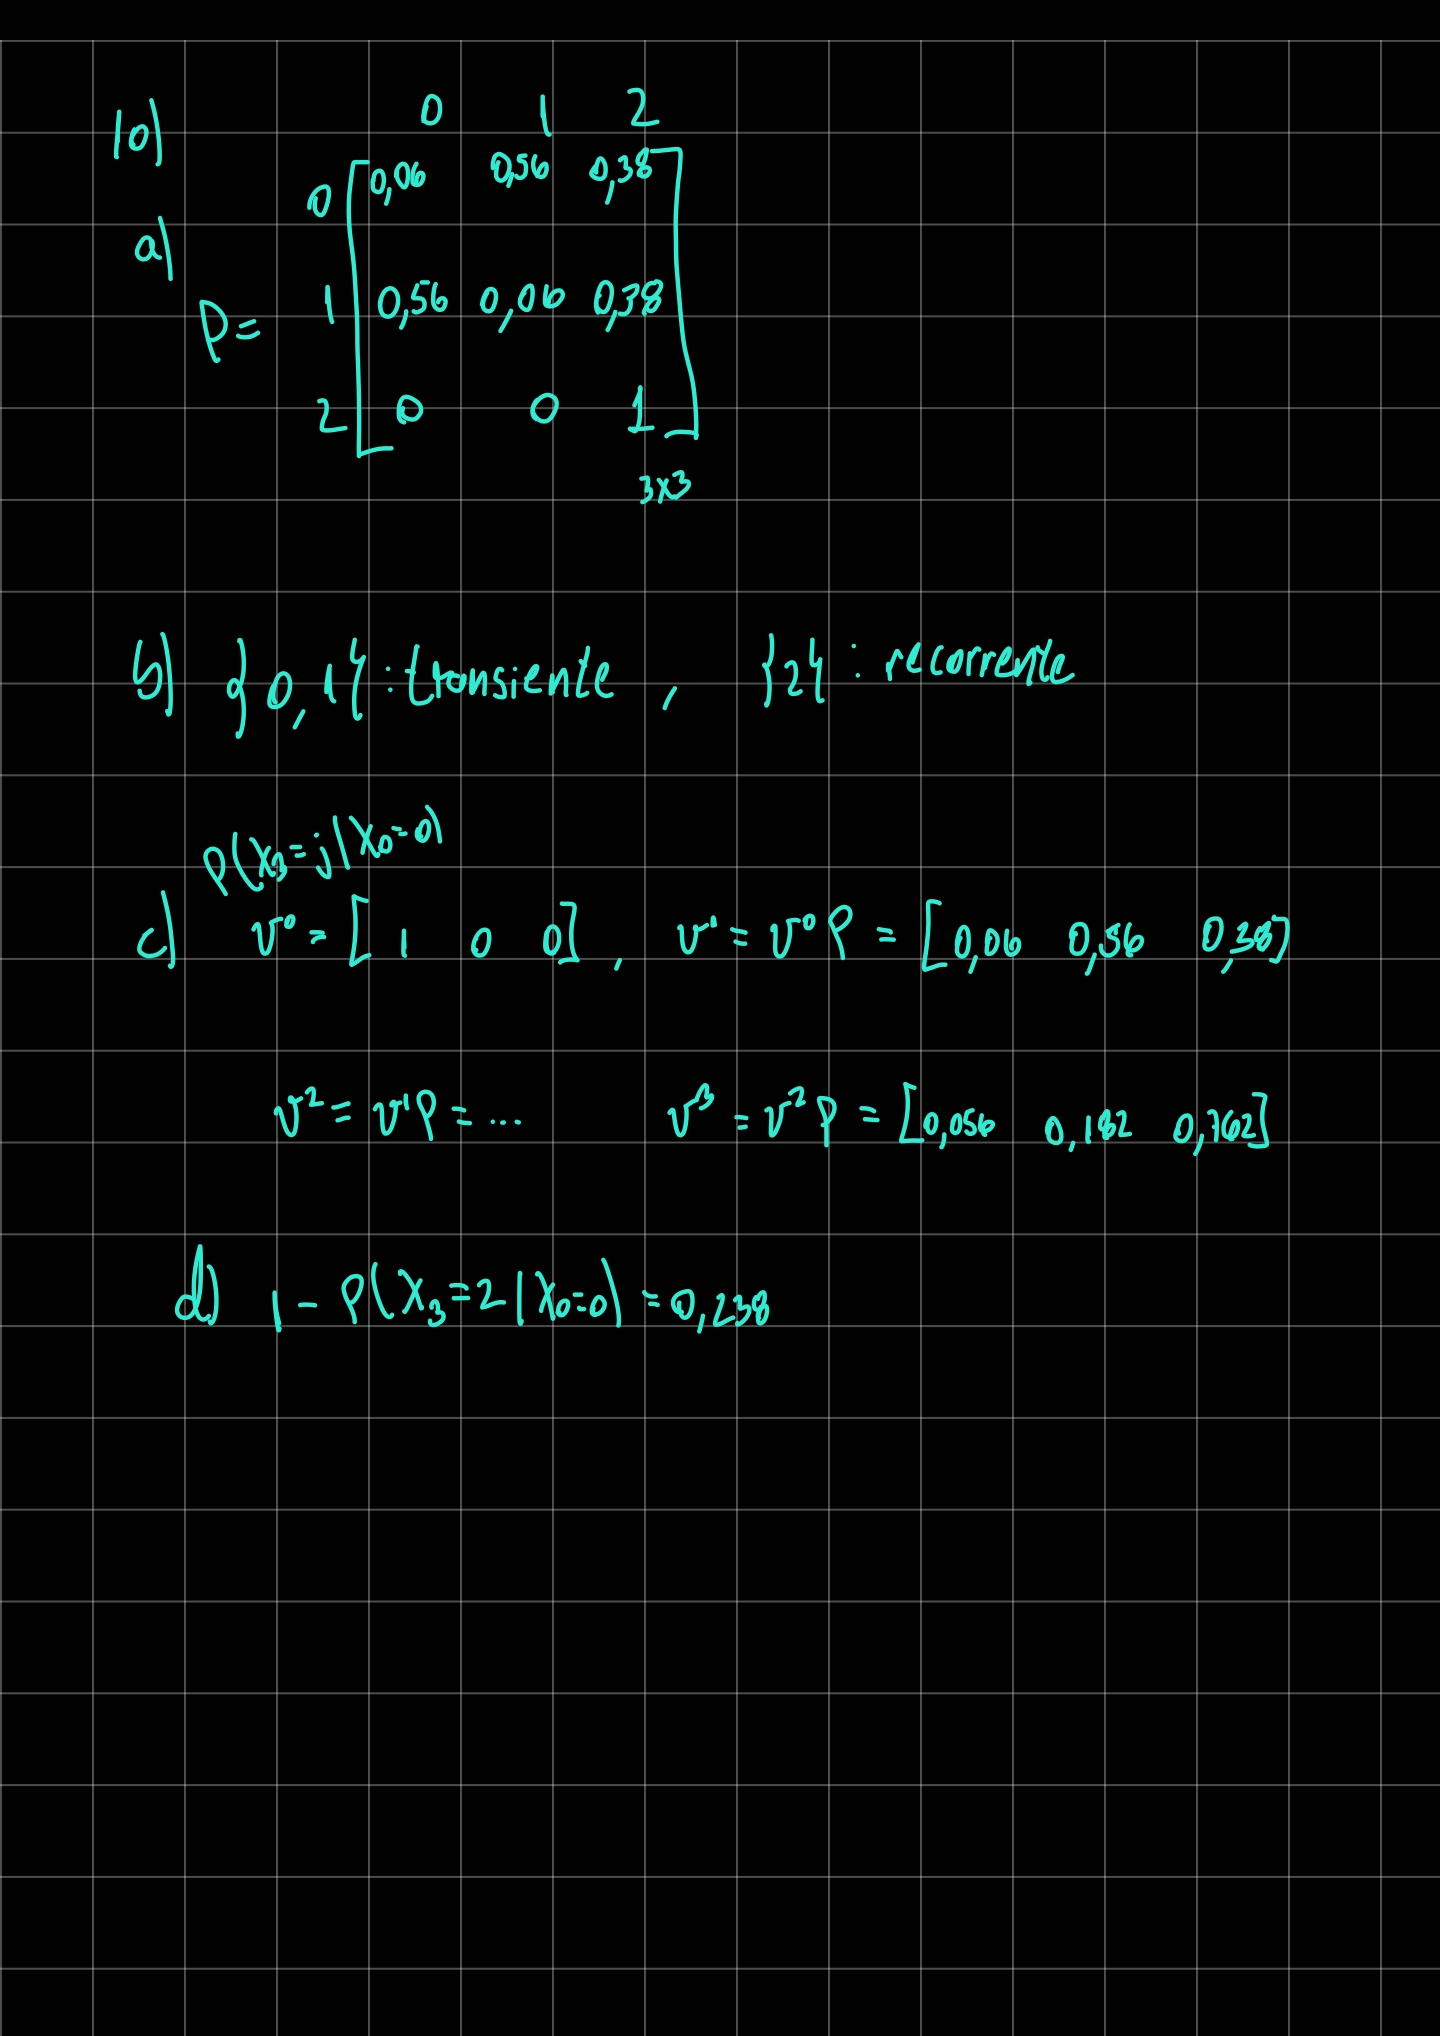 10)
0 1 2
a) P =
0 [ 0,06 0,56 0,38
1 0,56 0,06 0,38
2 0 0 1 ]
3x3
b) {0,1} : transiente , {2} : recorrente
P(X₃=j|X₀=0)
c) v⁰ = [ 1 0 0 ] , v¹ = v⁰P = [ 0,06 0,56 0,38 ]
v² = v¹P = ... v³ = v²P = [ 0,056 0,182 0,762 ]
d) 1 - P(X₃=2|X₀=0) = 0,238